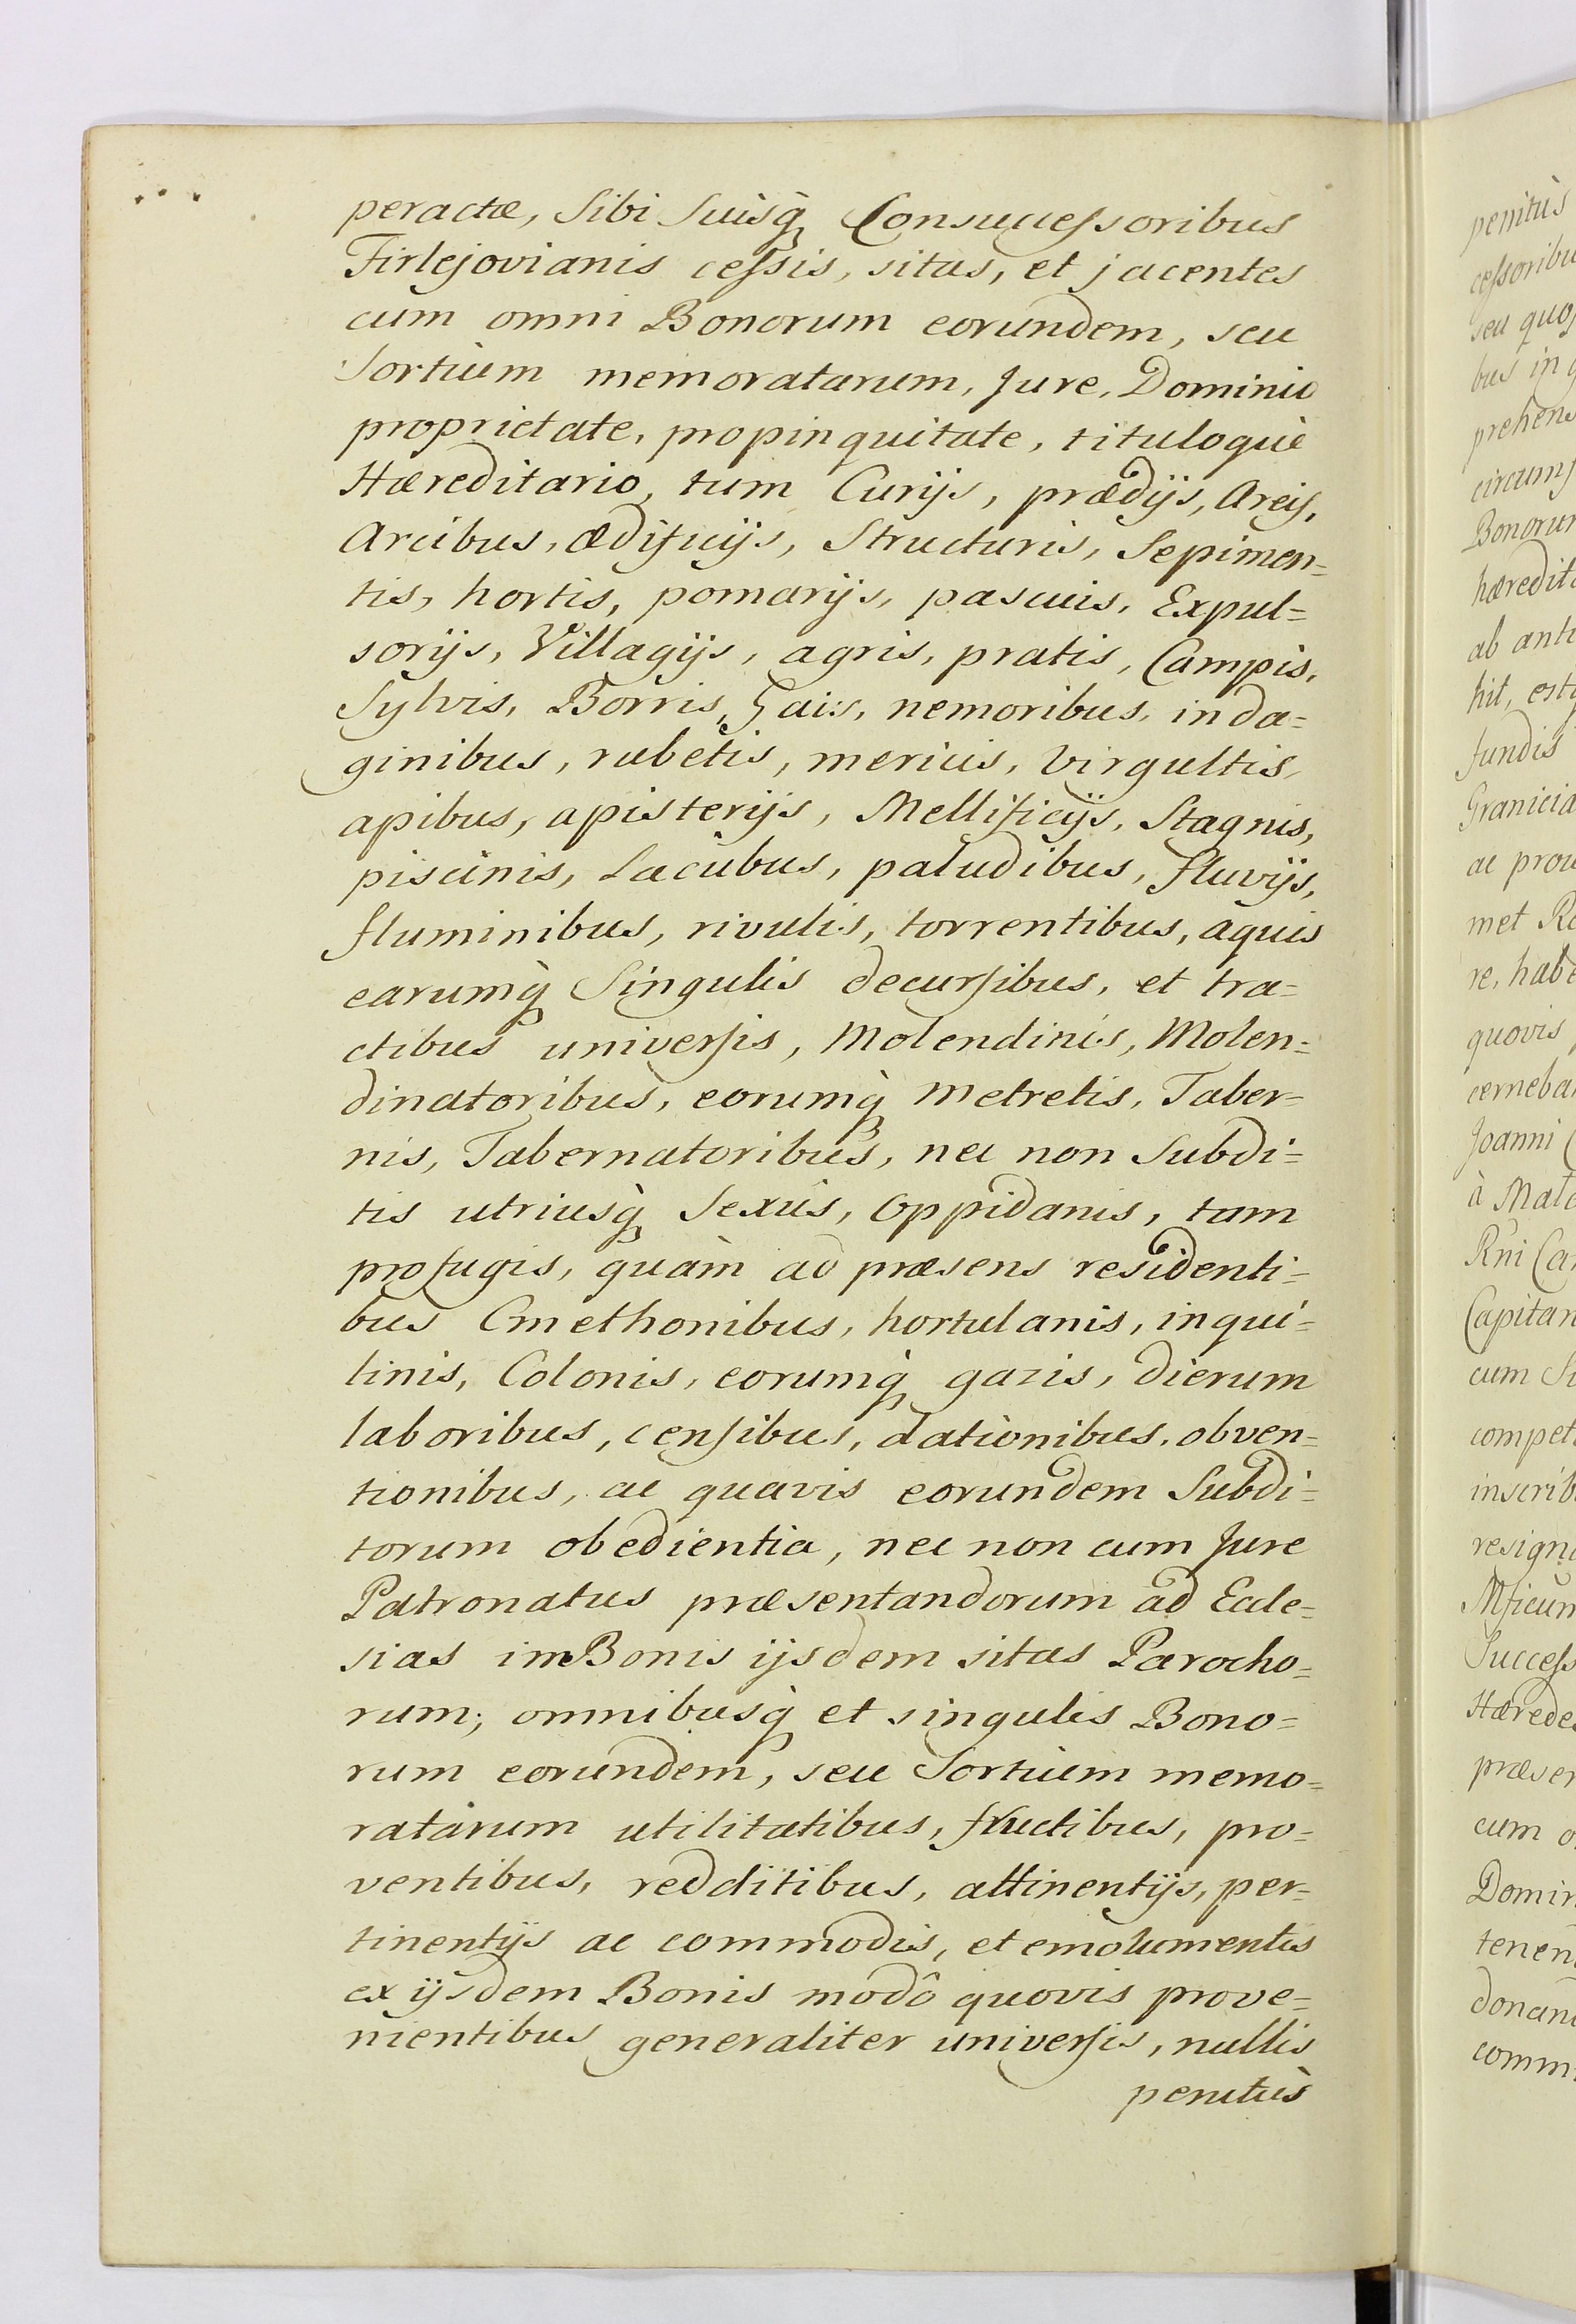 peractæ, Sibi Suisq̀ Consuccessoribus
Firlejovianis cessis, sitas, et jacentes
cum omni Bonorum eorundem, seu
Sortium memoratarum, Jure, Dominio
proprietate, propinquitate, tituloquè
Hæreditario, tum Curijs, prædijs, Areis,
Arcibus, ædificijs, Structuris, Sepimen=
tis, hortis, pomarijs, pascuis, Expul=
sorijs, Villagijs, agris, pratis, Campis,
Sylvis, Borris, Gais, nemoribus, inda=
ginibus, rubetis, mericis, virgultis,
apibus, apisterijs, Mellificijs, Stagnis,
piscinis, Lacubus, paludibus, fluvijs,
fluminibus, rivulis, torrentibus, aquis
earumq̀ Singulis decursibus, et tra=
ctibus universis, Molendinis, Molen=
dinatoribus, eorumq̀ metretis, Taber=
nis, Tabernatoribus, nec non Subdi=
tis utriusq̀ Sexûs, oppidanis, tam
profugis, quàm ad præsens residenti=
bus Cmethonibus, hortulanis, inqui=
linis, Colonis, eorumq̀ gazis, dierum
laboribus, censibus, dationibus, obven=
tionibus, ac quavis eorundem Subdi=
torum obedientia, nec non cum Jure
Patronatus præsentandorum ad Eccle=
sias in Bonis ijsdem sitas Parocho=
rum; omnibusq̀ et singulis Bono=
rum eorundem, seu Sortium memo=
ratarum utilitatibus, fructibus, pro=
ventibus, redditibus, attinentijs, per=
tinentijs ac commodis, et emolumentis
ex ijsdem Bonis modô quovis prove=
nientibus generaliter universis, nullis
penitùs
penitùs
cessoribu
seu quos
bus in q
prehens
circumf
Bonorum
hæredita
ab anti
hit, est
fundis
Granicia
ac prou
met Re
re, habe
quovis
cerneba
Joanni C
à Mala
Rñi Ca
Capitan
cum Su
compet
inscrib
resigna
Mficum
Success
Hæredes
præsen
cum o
Domin
tenen
donand
comm